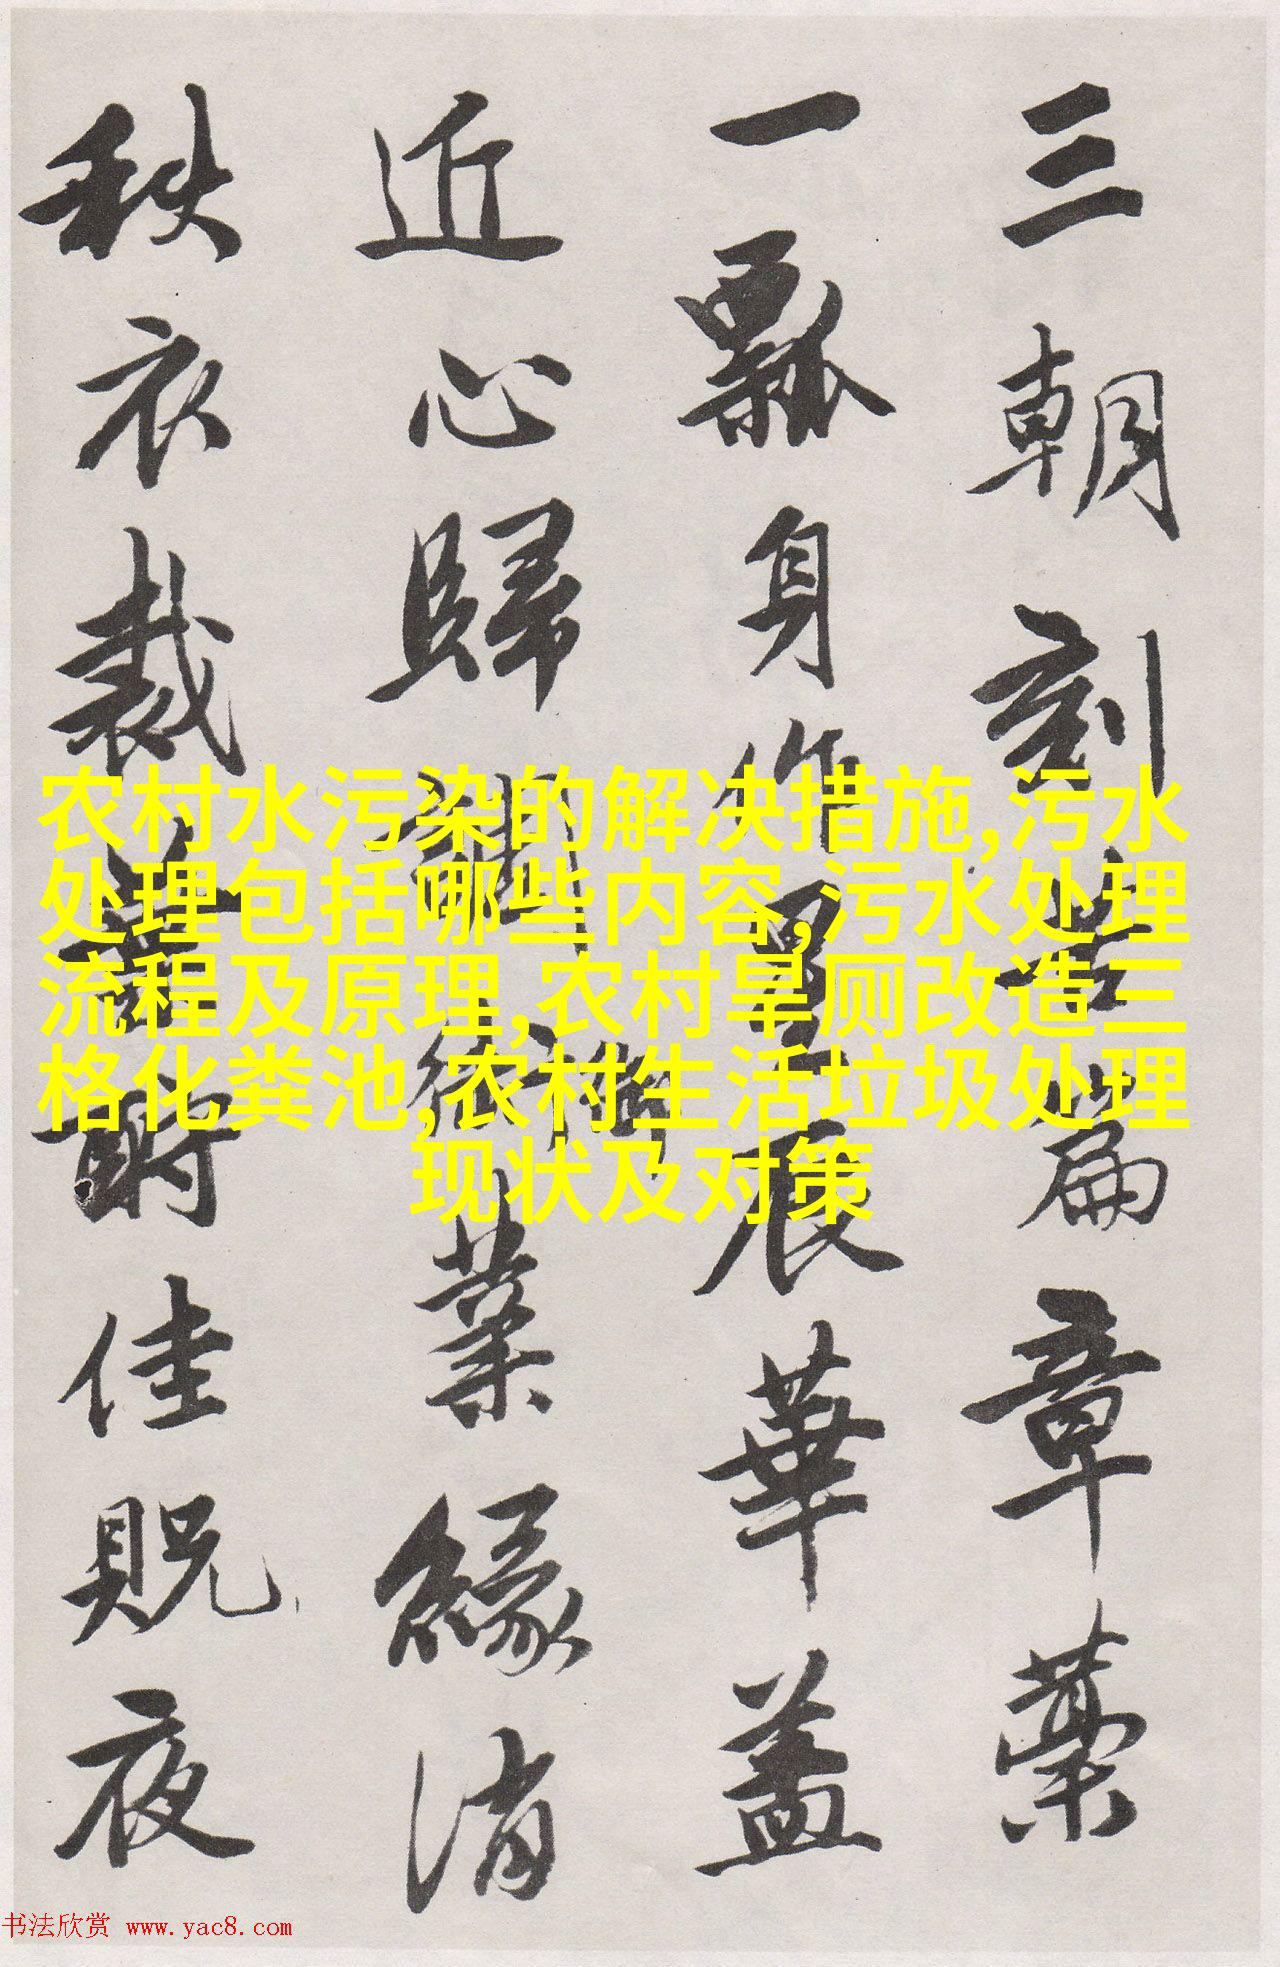 三朝刻苦篇章藁
一瓢身作星辰華蓋
近心歸調御業緣消
秩衣裁酬佳貺夜
农村水污染的解决措施,污水
处理包括哪些内容,污水处理
流程及原理,农村旱厕改造三
格化粪池,农村生活垃圾处理
现状及对策
书法欣赏 www.yac8.com